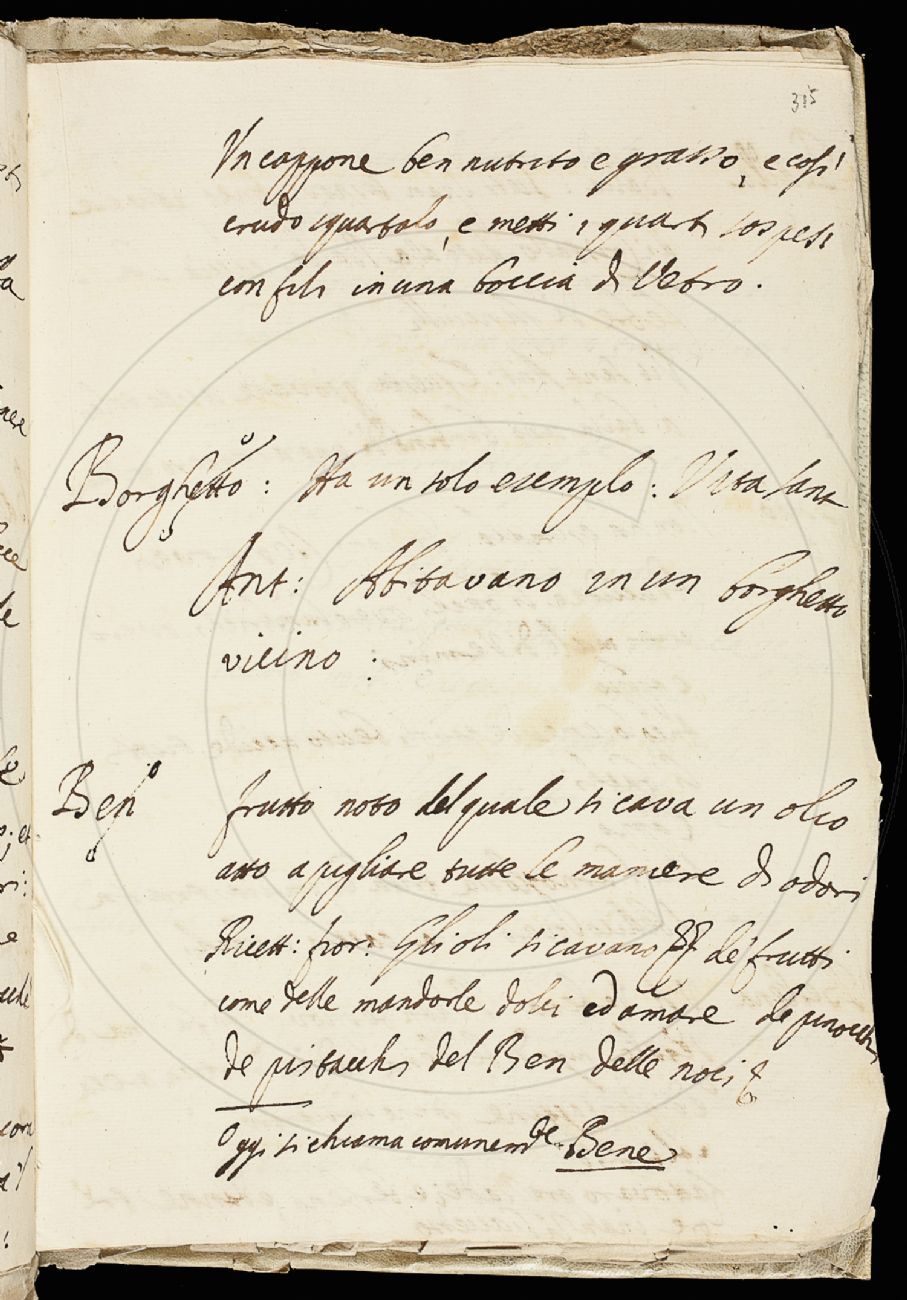 315
Un cappone ben nutrito e grasso, e così
crudo squartalo, e metti i quarti sospesi
con fili in una boccia di Vetro.
Borghetto: Ha un solo esemplo: Vita Sant
Ant: Abitavano in un borghetto
vicino:
Ben frutto noto del quale si cava un olio
atto a pigliare tutte le maniere di odori
Ricett: fior: Gli oli si cavano de' frutti
come delle mandorle dolci ed amare de pinocchi
de pistacchi del Ben delle noci
Oggi si chiama comunem.te Bene